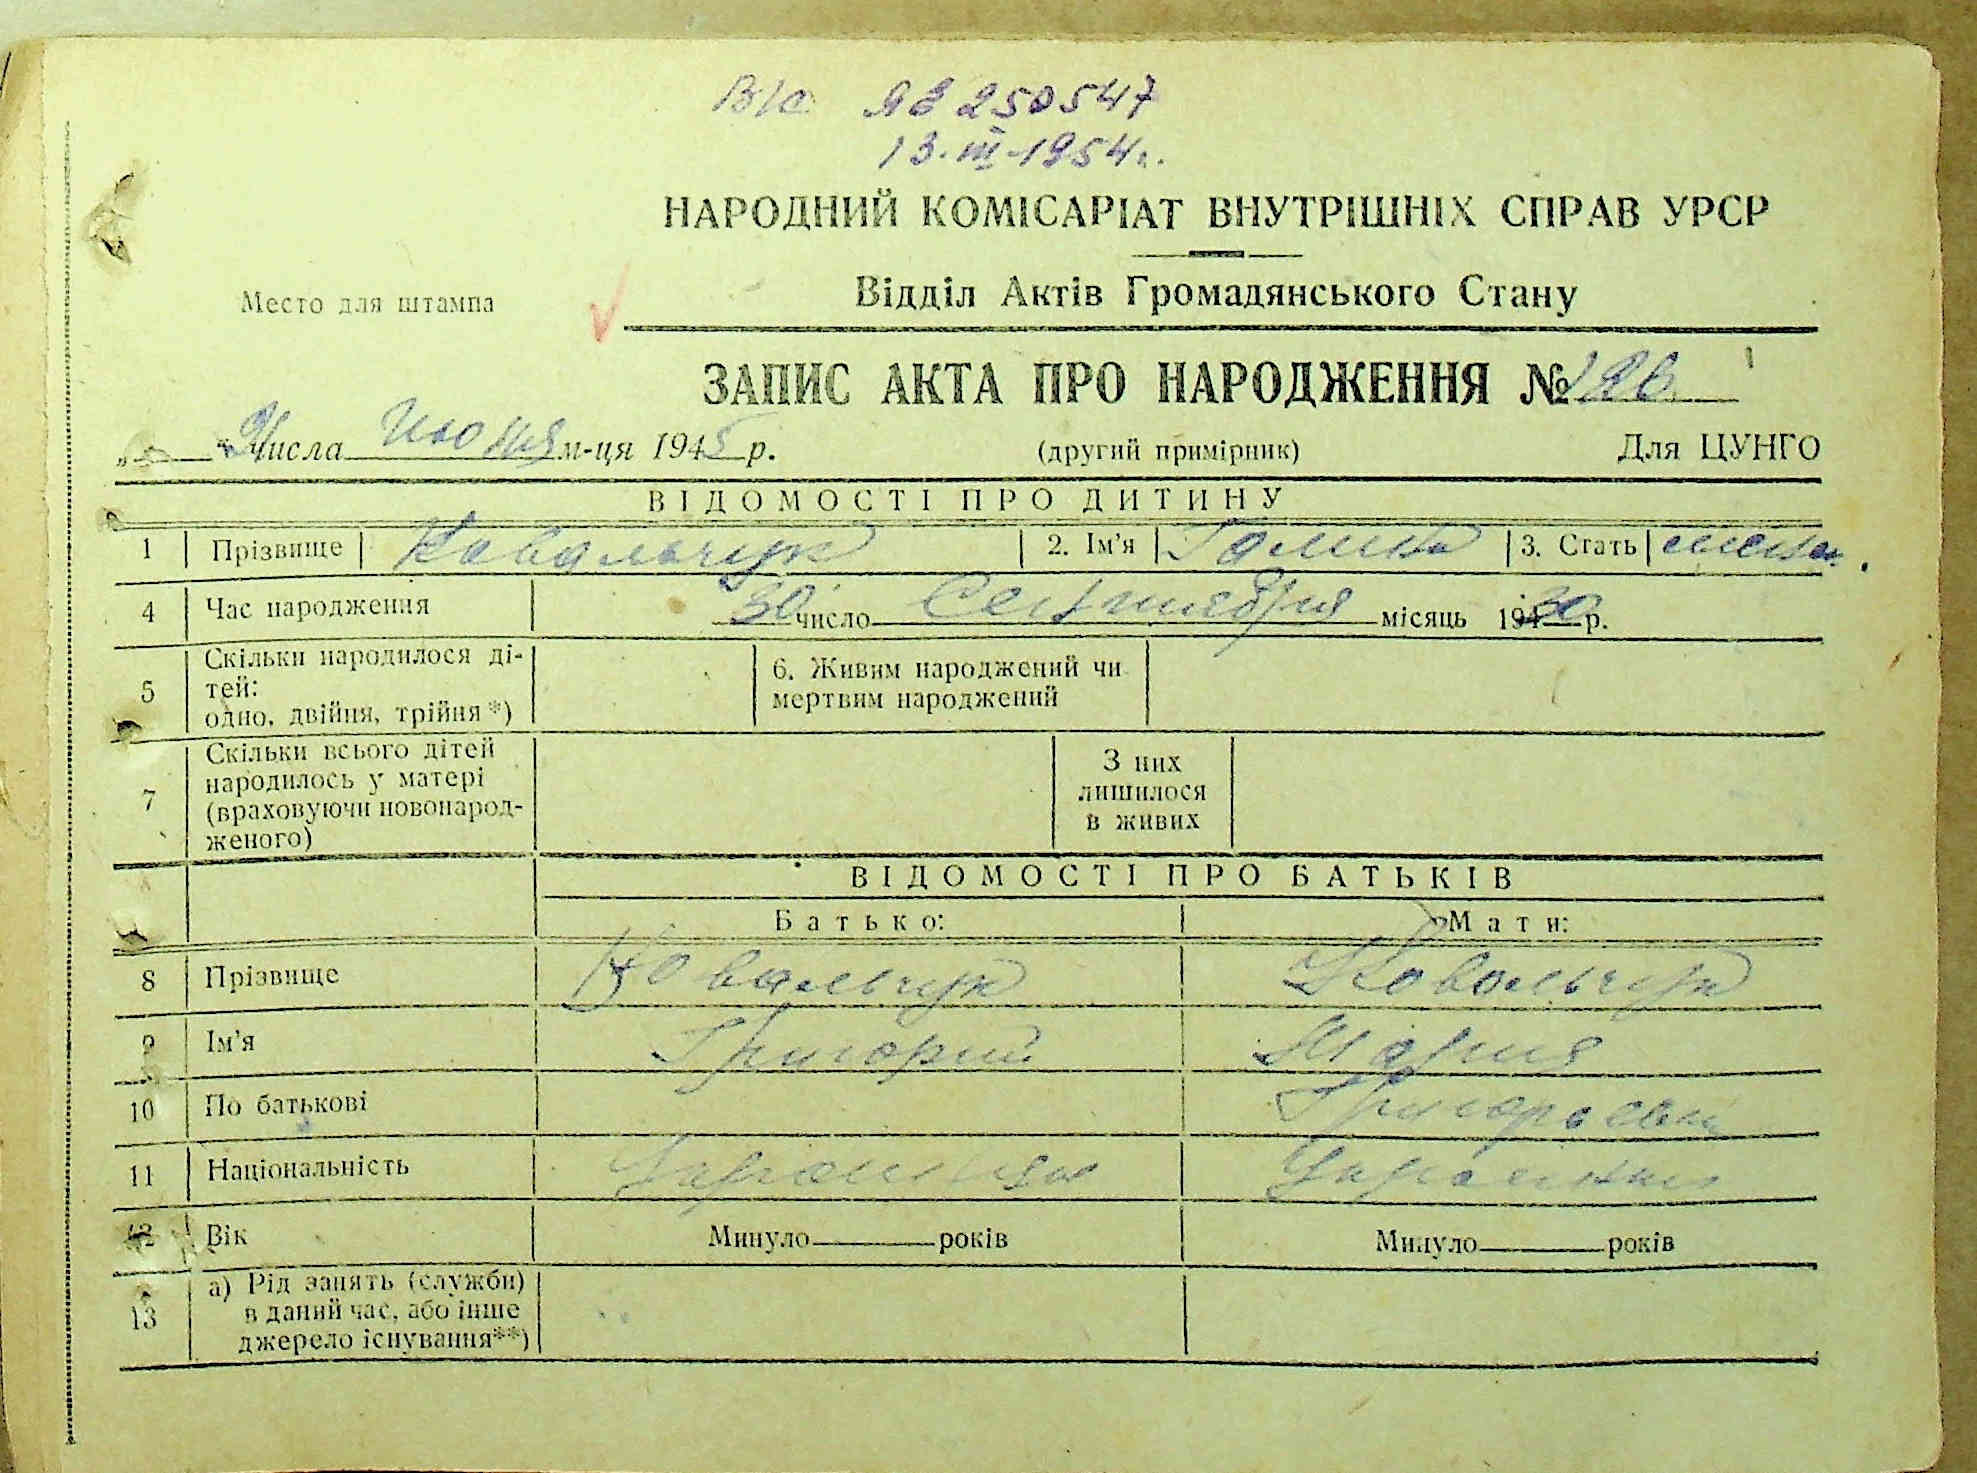 В/с ЯЗ 250547
13.III-1954г.
НАРОДНИЙ КОМІСАРІАТ ВНУТРІШНІХ СПРАВ УРСР
Відділ Актів Громадянського Стану
Место для штампа
ЗАПИС АКТА ПРО НАРОДЖЕННЯ №
числа Июня м-ця 1945 р. (другий примірник) Для ЦУНГО
ВІДОМОСТІ ПРО ДИТИНУ
1 Прізвище Ковальчук 2. Ім'я Галина 3. Стать женск.
4 Час народження 30 число Сентября місяць 1930 р.
5 Скільки народилося ді-
тей:
одно, двійня, трійня *)
6. Живим народжений чи
мертвим народжений
7 Скільки всього дітей
народилось у матері
(враховуючи новонарод-
женого)
З них
лишилося
в живих
ВІДОМОСТІ ПРО БАТЬКІВ
Батько: Мати:
8 Прізвище Ковальчук Ковальчук
9 Ім'я Григорий Мария
10 По батькові Григорьевна
11 Національність Украинец Украинка
12 Вік Минуло років Минуло років
13 а) Рід занять (служби)
в даний час, або інше
джерело існування**)